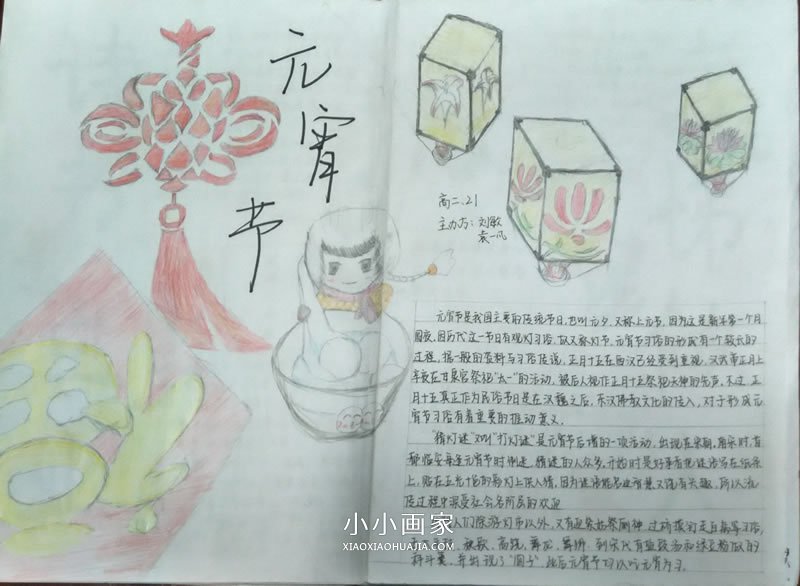 元宵节
高二.21
主办方:刘敏
袁一凡
元宵节是我国主要的传统节日,也叫元夕,又称上元节,因为这是新年第一个月
圆夜,因历代这一节日有观灯习俗,故又称灯节。元宵节习俗的形成有一个较长的
过程,据一般的资料与习俗传说,正月十五在西汉已经受到重视,汉武帝正月上
辛夜在甘泉宫祭祀"太一"的活动,被后人视作正月十五祭祀天神的先声。不过,正
月十五真正作为民俗节日是在汉魏之后,东汉佛教文化的传入,对于形成元
宵节习俗有着重要的推动意义。
"猜灯谜"又叫"打灯谜"是元宵节后增的一项活动,出现在宋朝,南宋时,首
都临安每逢元宵节时制迷,猜迷的人众多,开始时是好事者把迷语写在纸条
上,贴在五光十色的彩灯上供人猜,因为迷语能启迪智慧又饶有兴趣,所以流
传过程中深受社会各阶层的欢迎
人们除游灯市以外,又有迎紫姑祭厕神、过桥摸钉走百病等习俗,
秧歌、高跷、舞龙、舞狮,到宋代有盐豉汤和绿豆粉做的
科斗羹,并出现了"圆子",此后元宵节均以吃元宵为习
小小画家
XIAOXIAOHUAJIA.COM